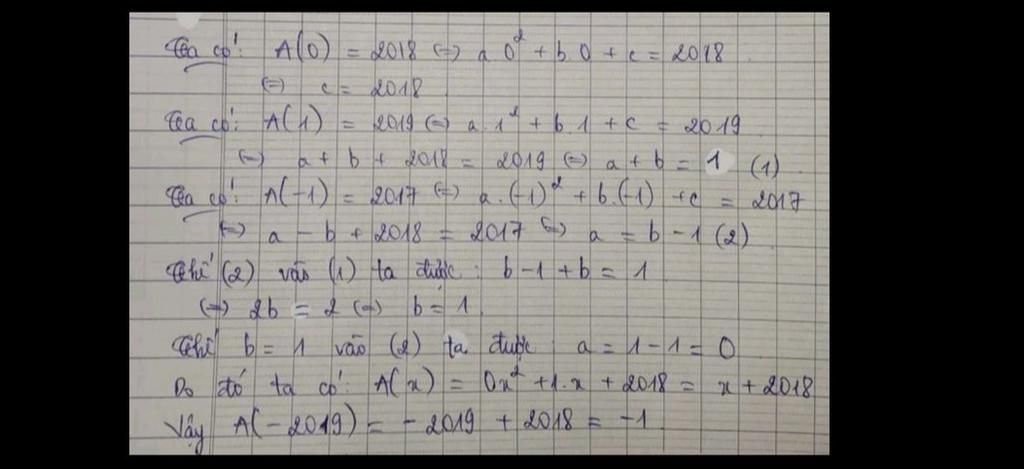 Ta có: A(0) = 2018 (=) a 0² + b.0 + c = 2018
(=) c = 2018
Ta có: A(1) = 2019 (=) a.1² + b.1 + c = 2019
(=) a + b + 2018 = 2019 (=) a + b = 1 (1)
Ta có: A(-1) = 2017 (=) a.(-1)² + b.(-1) + c = 2017
(=) a - b + 2018 = 2017 (=) a = b - 1 (2)
Thế (2) vào (1) ta được: b - 1 + b = 1
(=) 2b = 2 (=) b = 1
Thế b = 1 vào (2) ta được: a = 1 - 1 = 0
Do đó ta có: A(x) = 0x² + 1.x + 2018 = x + 2018
Vậy A(-2019) = -2019 + 2018 = -1